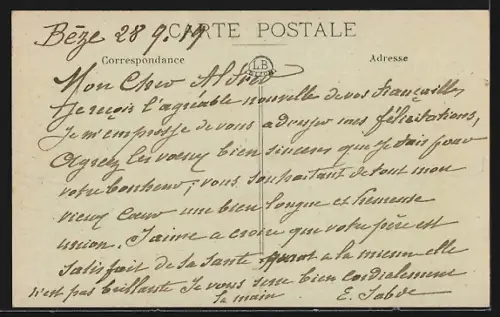 Bèze 28 9. 19
CARTE POSTALE
LB
Correspondance
Adresse
Mon Cher Alfred
Je reçois l'agréable nouvelle de vos françailles,
Je m'empresse de vous adresser mes félicitations,
Agréez les voeux bien sincères que je fais pour
votre bonheur; vous souhaitant de tout mon
vieux cœur une bien longue et heureuse
union. J'aime a croire que votre père est
satisfait de sa santé quant a la mienne elle
n'est pas brillante Je vous serre bien cordialement
la main E.